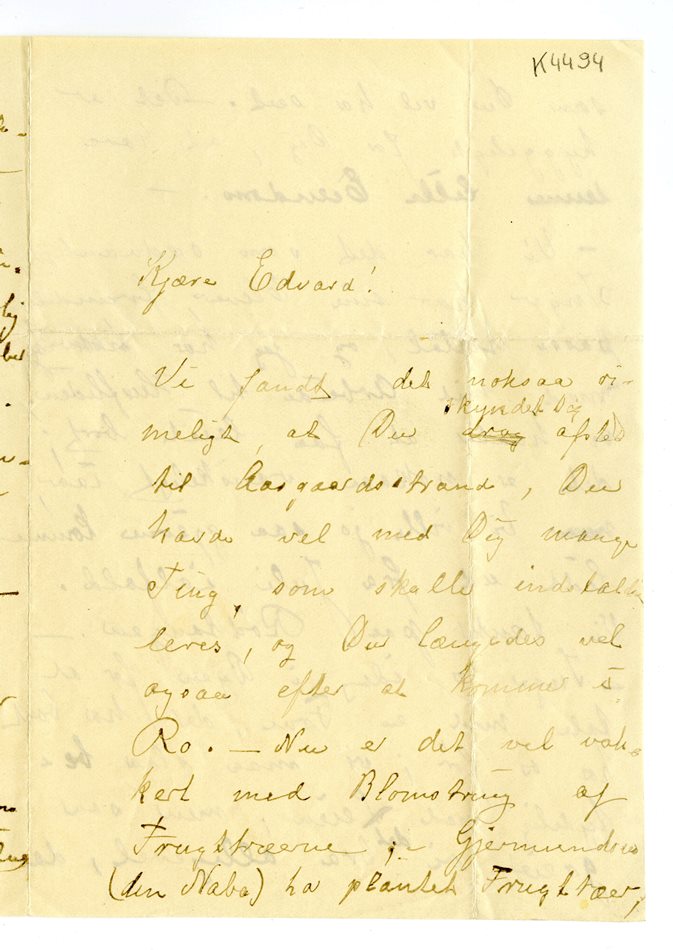 K4494
Kjære Edvard!
Vi fandt det noksaa ri-
skyndet Dig
meligt, at Du drog afsted
til Aasgaardsstrand, Du
havde vel med Dig mange
Ting, som skulle indstalle
leres, og Du længedes vel
ogsaa efter at komme i
Ro. — Nu er det vel vak-
kert med Blomstring af
Frugttræerne; Gjermundsen
(din Nabo) ha plantet Frugttræer,